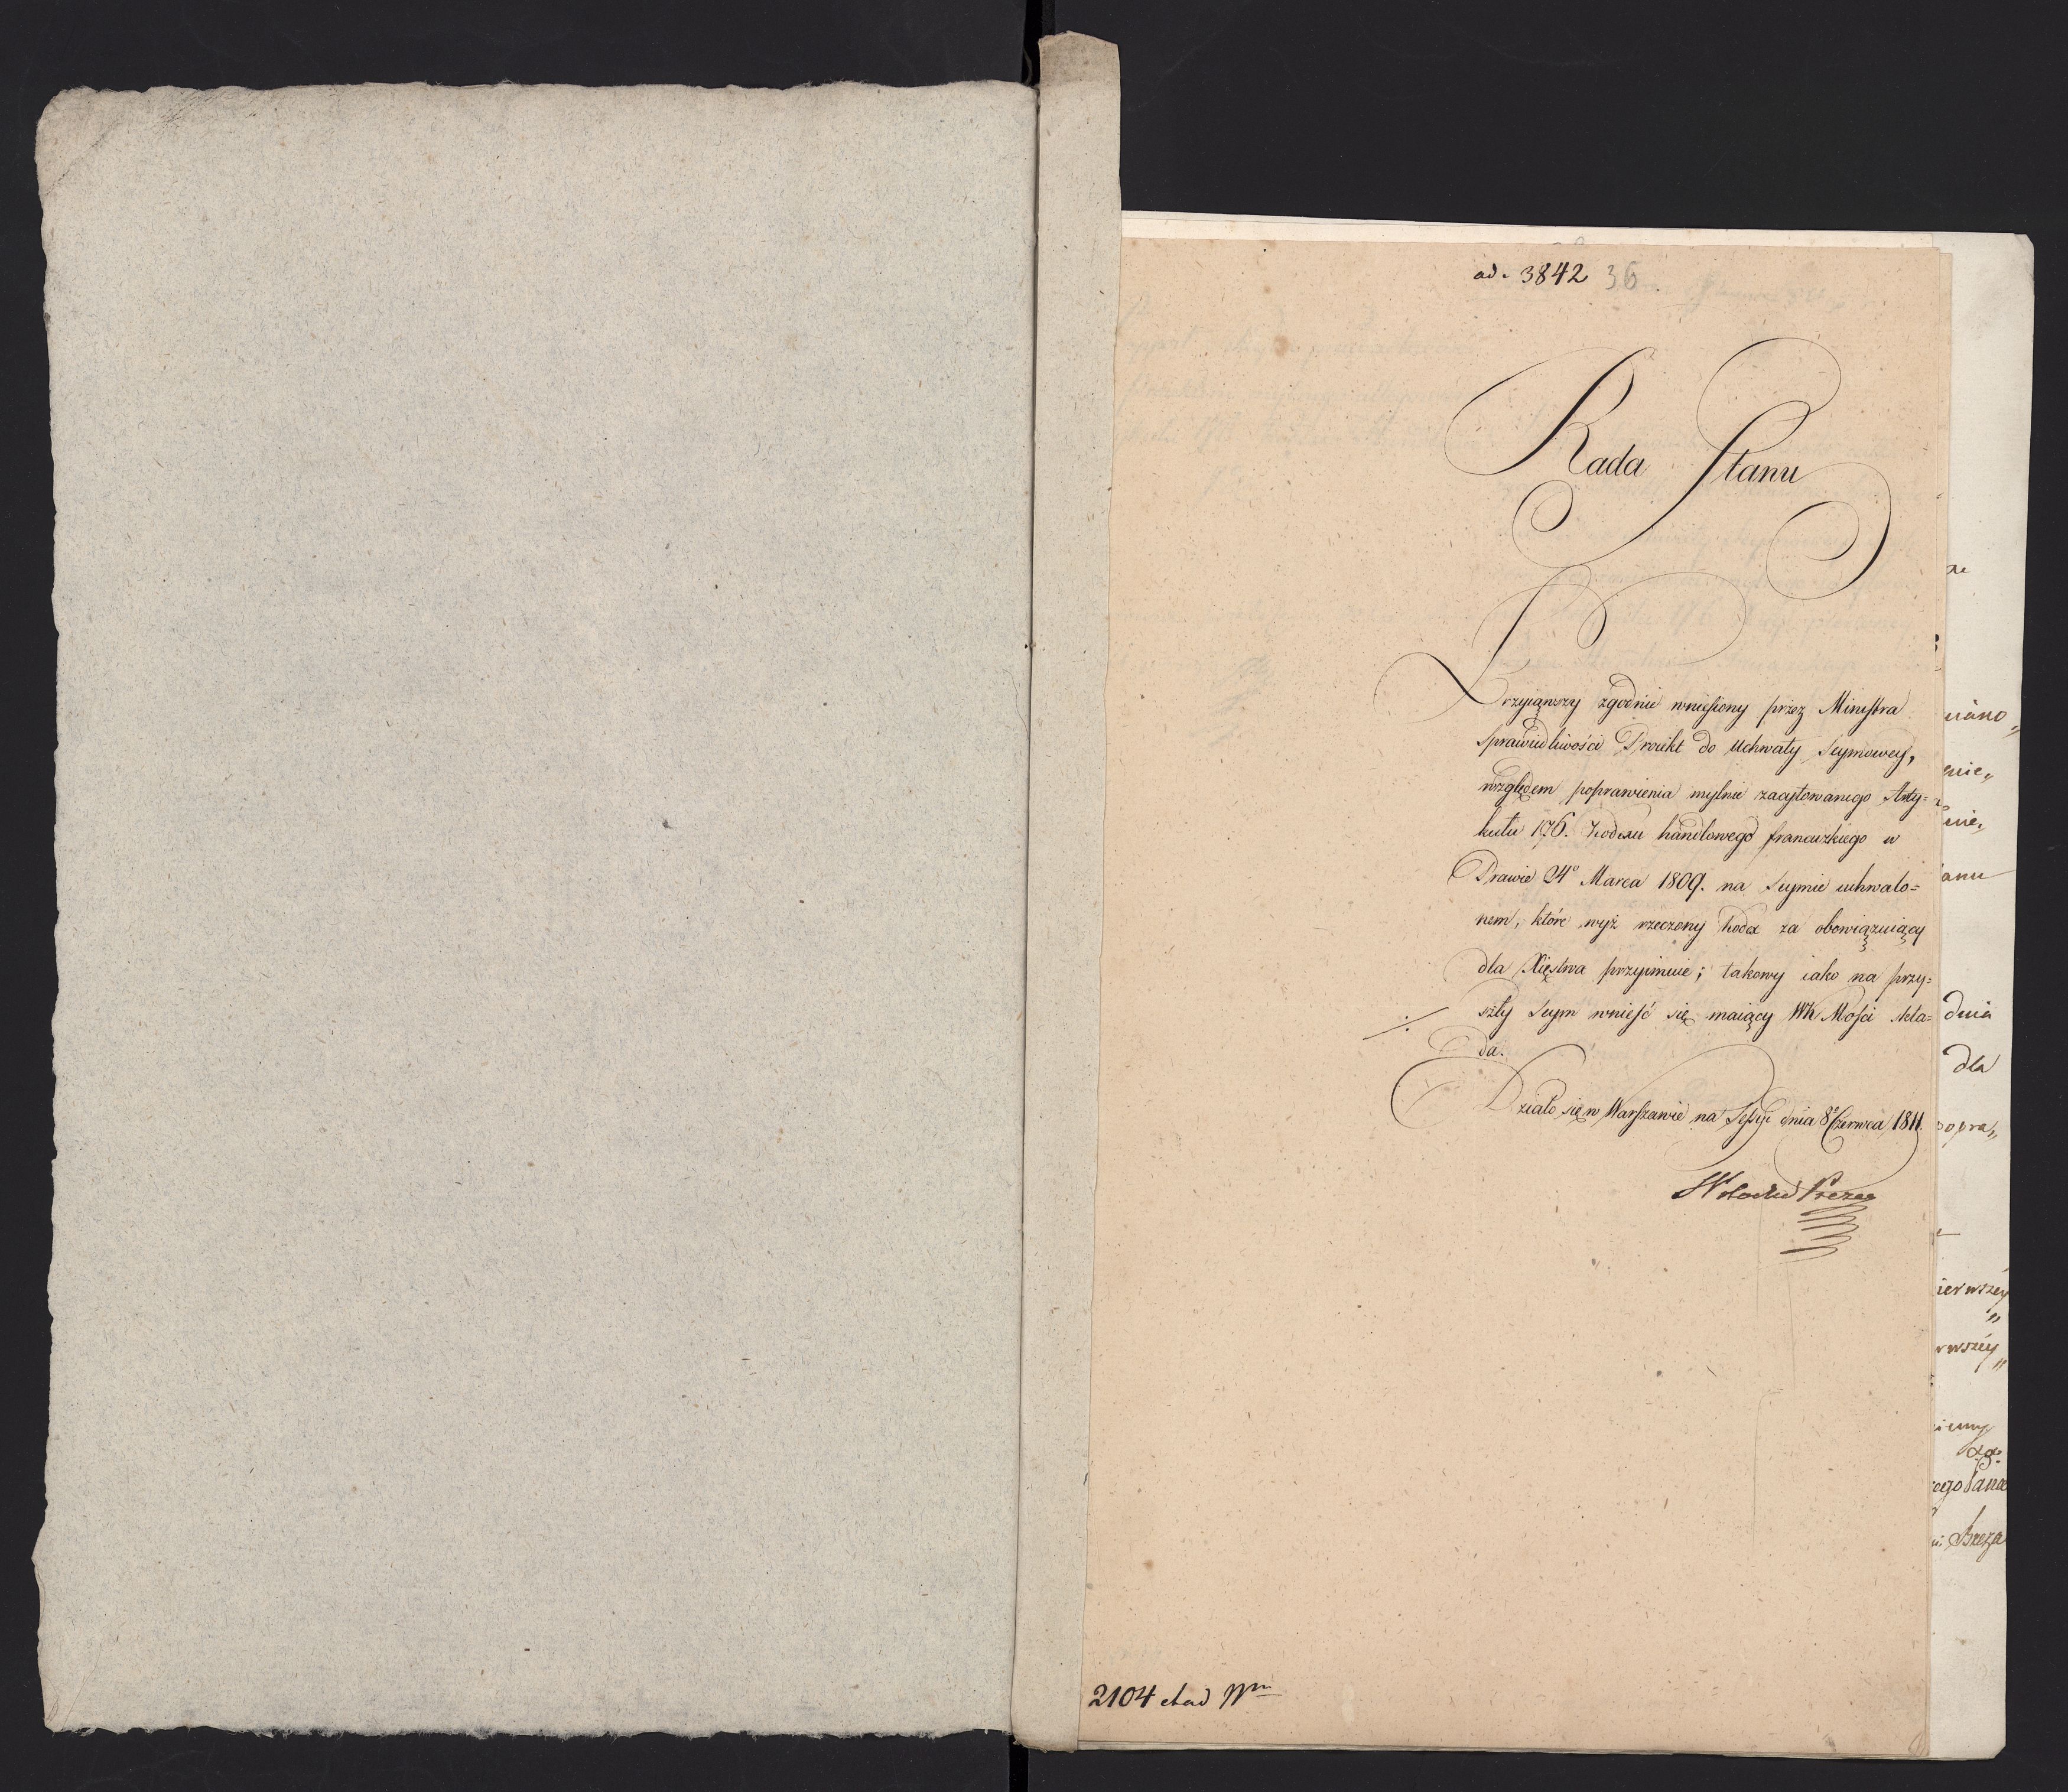 ad. 3842 36
Rada Stanu
Przyiąwszy zgodnie wniesiony przez Ministra
Sprawiedliwości Proiekt do Uchwały Seymowey,
względem poprawienia mylnie zacytowanego Arty=
kułu 176. Kodexu handlowego francuzkiego w
Prawie 24o Marca 1809. na Seymie uchwalo=
nem, które wyż rzeczony Kodex za obowiązuiący
dla Xięstwa przyimuie; takowy iako na przy=
szły Seym wnieść się maiący WK Mości skła=
da.
Działo się w Warszawie na Sessyi dnia 8o Czerwca 1811.
Prezes
2104 et ad
miano„
enie„
anu
dnia
dla
popra„
ierwszey
„
rwszéy„
Breza